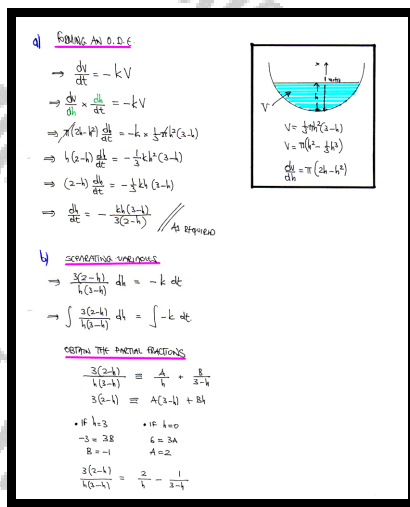 a) FORMING AN O.D.E.
⇒ dV/dt = -kV
⇒ dV/dh × dh/dt = -kV
⇒ π(2h-h²) dh/dt = -k × 1/3 πh²(3-h)
⇒ h(2-h) dh/dt = -1/3 kh²(3-h)
⇒ (2-h) dh/dt = -1/3 kh (3-h)
⇒ dh/dt = - kh(3-h)/3(2-h) // AS REQUIRED
1 metre
h
V
V = 1/3 πh²(3-h)
V = π(h² - 1/3 h³)
dV/dh = π(2h-h²)
b) SEPARATING VARIABLES
⇒ 3(2-h)/h(3-h) dh = -k dt
⇒ ∫ 3(2-h)/h(3-h) dh = ∫ -k dt
OBTAIN THE PARTIAL FRACTIONS
3(2-h)/h(3-h) ≡ A/h + B/3-h
3(2-h) ≡ A(3-h) + Bh
• IF h=3 • IF h=0
-3 = 3B 6 = 3A
B = -1 A = 2
3(2-h)/h(3-h) = 2/h - 1/3-h